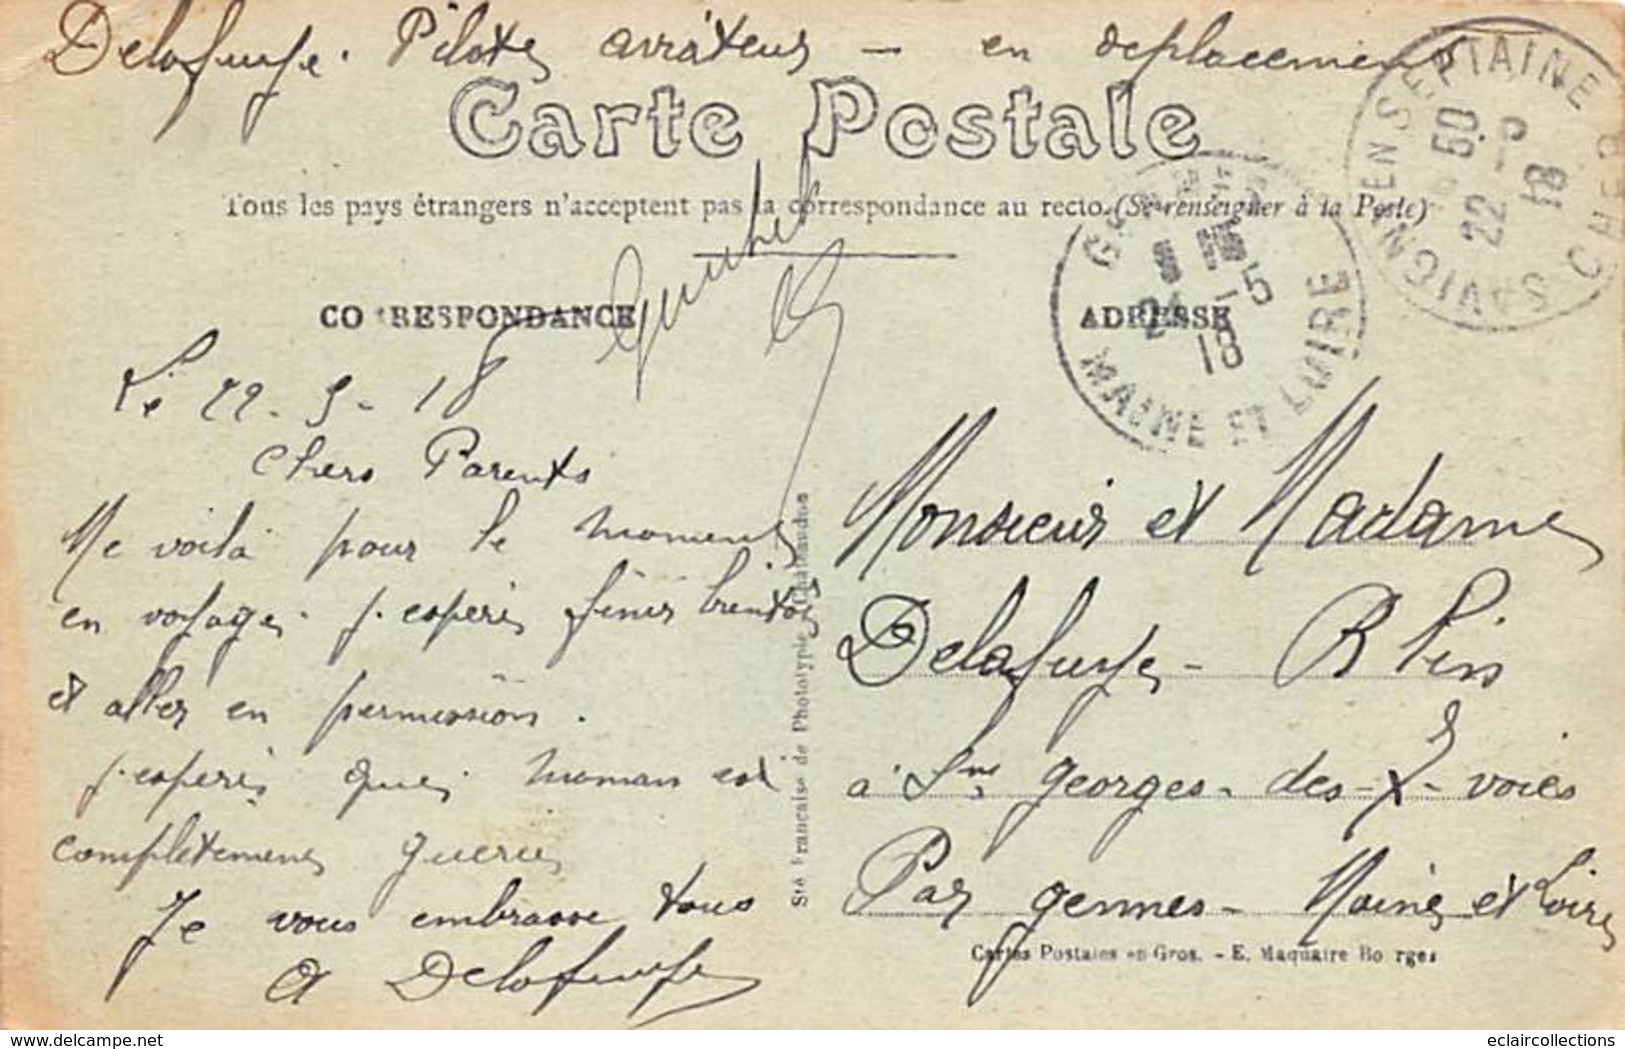 Delafuye. Pilote aviateur — en deplacement
Carte Postale
Tous les pays étrangers n'acceptent pas la correspondance au recto. (Se renseigner à la Poste)
CORRESPONDANCE
ADRESSE
SAVIGNY EN SEPTAINE CHER
50
22-5
18
24-5
18
MAINE ET LOIRE
Le 22-5-18
Chers Parents
Me voilà pour le moment
en voyage. J'espère finir bientot
et aller en permission.
J'espère que maman est
complètement guerie
Je vous embrasse tous
A Delafuye
Monsieur et Madame
Delafuye - 
à St Georges-des-7-voies
Par Gennes - Maine et Loire
Sté Française de Phototypie Chateaudun
Cartes Postales en Gros. - E. Maquaire Bourges
www.delcampe.net
eclaircollections